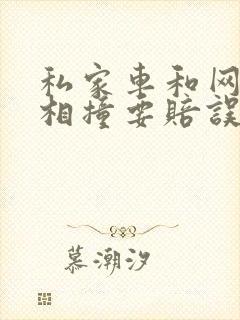 私家車和网
相撞要賠誤
慕潮汐